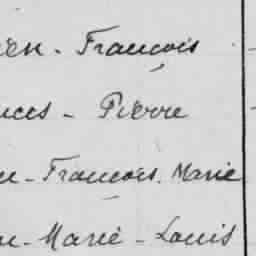 en - François
nces - Pierre
- François. Marie
- Marie - Louis